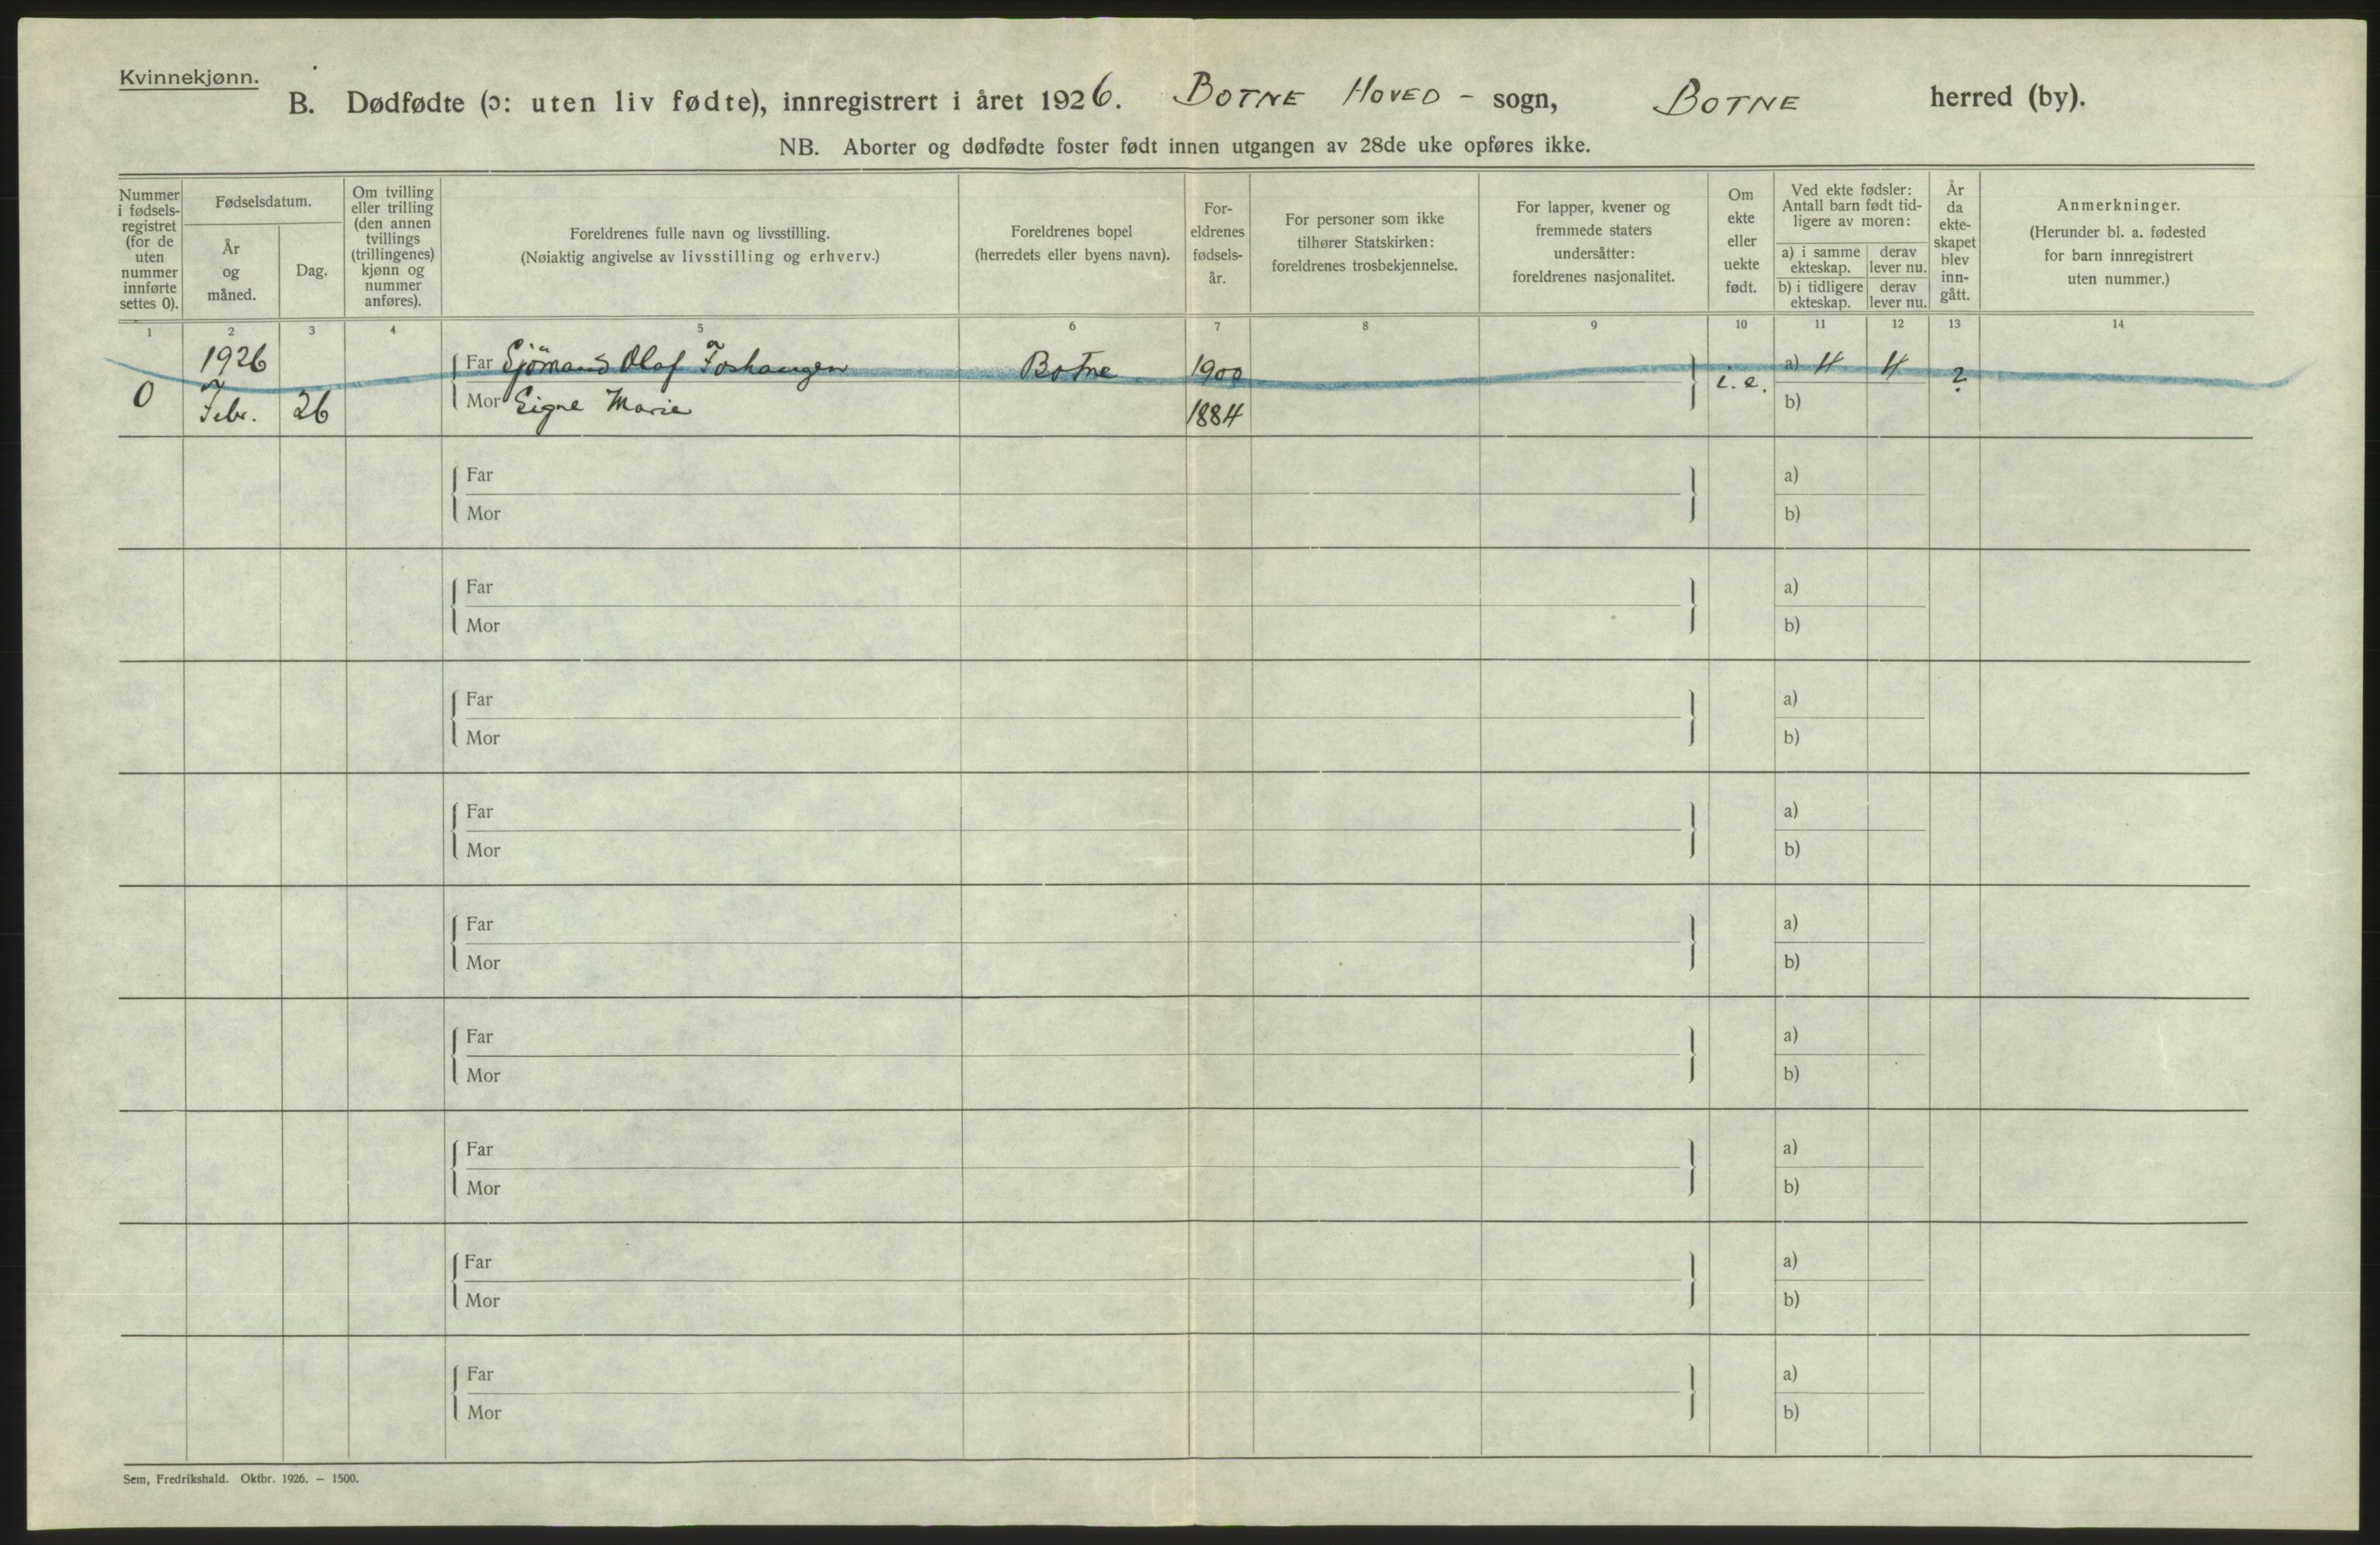 Kvinnekjønn.
B. Dødfødte (ɔ: uten liv fødte), innregistrert i året 1926. BOTNE HOVED - sogn, BOTNE herred (by).
NB. Aborter og dødfødte foster født innen utgangen av 28de uke opføres ikke.
Nummer i fødsels-registret (for de uten nummer innførte settes 0).
Fødselsdatum.
År og måned.
Dag.
Om tvilling eller trilling (den annen tvillings (trillingenes) kjønn og nummer anføres).
Foreldrenes fulle navn og livsstilling.
(Nøiaktig angivelse av livsstilling og erhverv.)
Foreldrenes bopel
(herredets eller byens navn).
For-eldrenes fødsels-år.
For personer som ikke tilhører Statskirken: foreldrenes trosbekjennelse.
For lapper, kvener og fremmede staters undersåtter: foreldrenes nasjonalitet.
Om ekte eller uekte født.
Ved ekte fødsler: Antall barn født tid-ligere av moren:
a) i samme ekteskap.
derav lever nu.
b) i tidligere ekteskap.
derav lever nu.
År da ekte-skapet blev inn-gått.
Anmerkninger.
(Herunder bl. a. fødested for barn innregistrert uten nummer.)
1 2 3 4 5 6 7 8 9 10 11 12 13 14
1926
Far Sjömand Olaf Foshaugen Botne 1900 a) 4 4 ?
0 Febr. 26 i. e.
Mor Signe Marie 1884 b)
Far a)
Mor b)
Far a)
Mor b)
Far a)
Mor b)
Far a)
Mor b)
Far a)
Mor b)
Far a)
Mor b)
Far a)
Mor b)
Far a)
Mor b)
Far a)
Mor b)
Sem, Fredrikshald. Oktbr. 1926. – 1500.